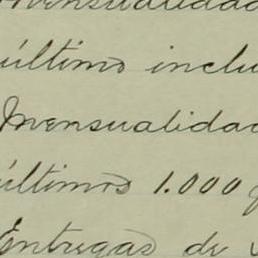 Mensualidad
último inclu
Mensualidad
últimos 1.000
Entregas de